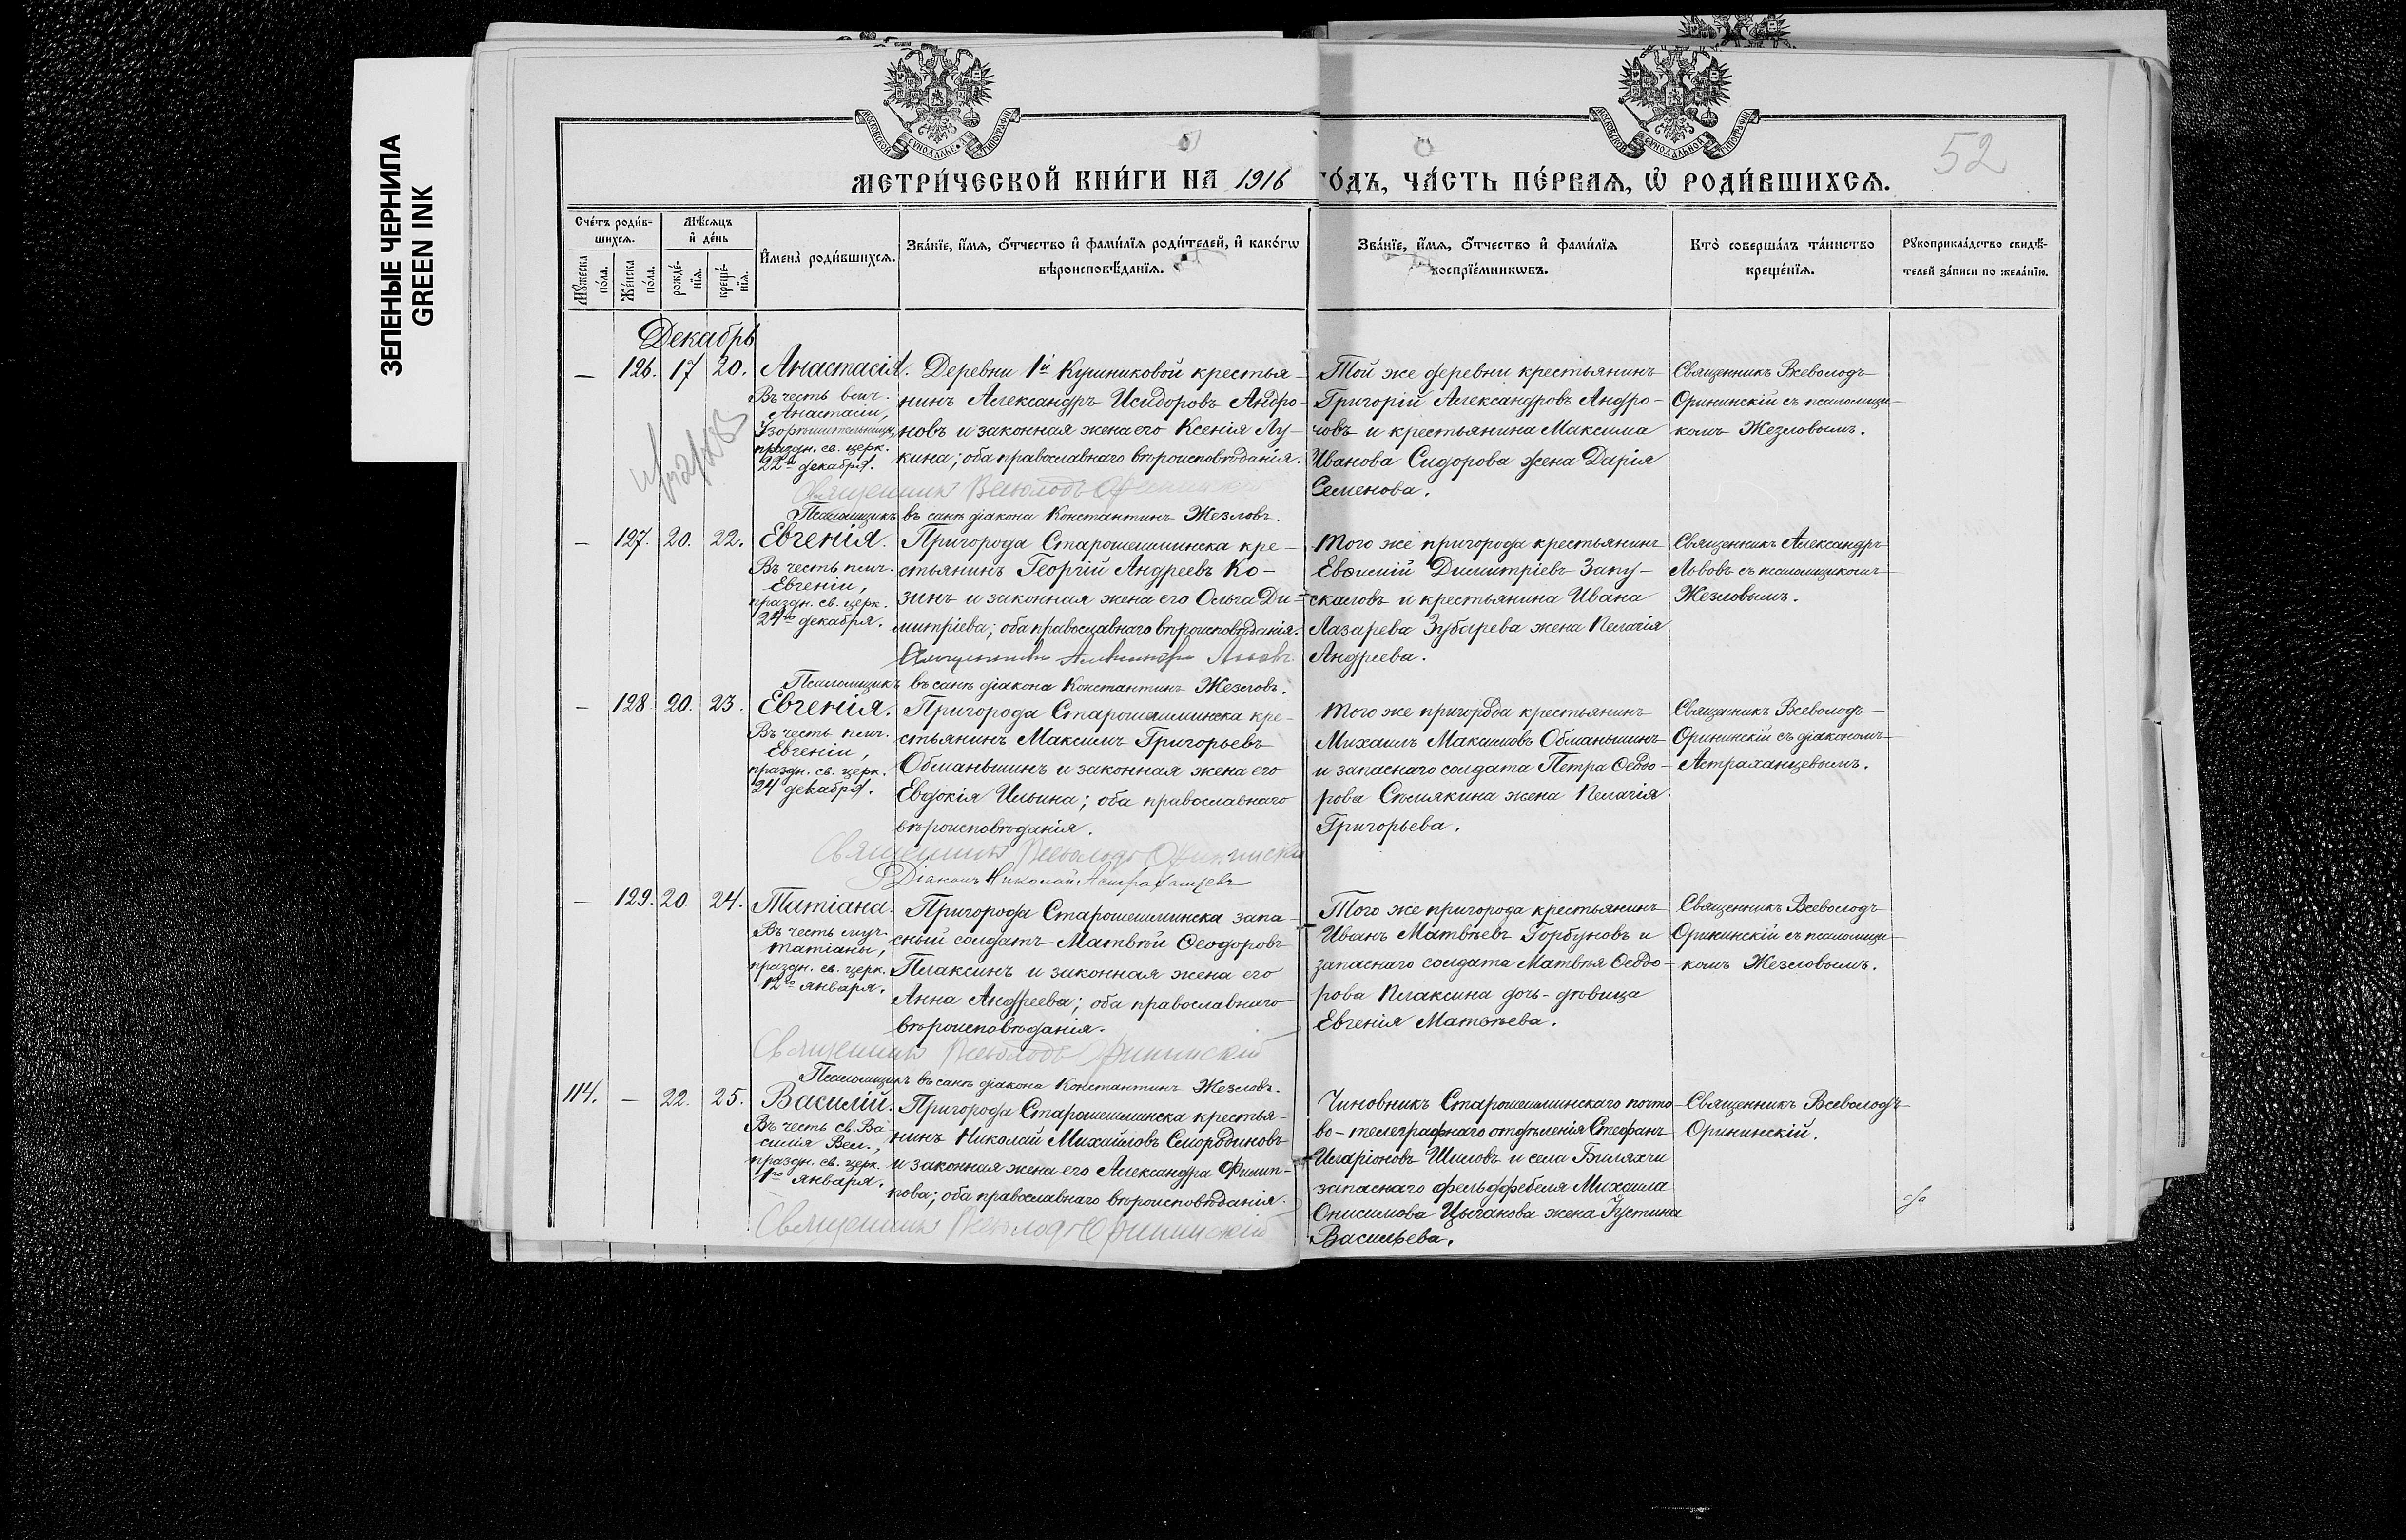 ЗЕЛЕНЫЕ ЧЕРНИЛА
GREEN INK
МОСКОВСКОЙ СѴНОДАЛЬН. ТИПОГРАФІИ
МОСКОВСКОЙ СѴНОДАЛЬНОЙ ТИПОГРАФІИ
52
МЕТРИ́ЧЕСКОЙ КНИ́ГИ НА 1916 ГО́ДЪ, ЧА́СТЬ ПЕ́РВАЯ, Ѡ РОДИ́ВШИХСЯ.
Сче́тъ роди́в-
шихся.
Мꙋ́жеска
по́ла.
Же́нска
по́ла.
Мѣ́сяцъ
и҆ де́нь
рожде́-
нїя.
креще́-
нїя.
И҆мена̀ роди́вшихся.
Зва́нїе, и҆́мя, ѻ҆́тчество и҆ фамилїя роди́телей, и҆ како́гѡ
вѣроисповѣ́данїя.
Зва́нїе, и҆́мя, ѻ҆́тчество и҆ фами́лїя
воспрїе́мникѡвъ.
Кто̀ соверша́лъ та́инство
креще́нїя.
Рꙋкоприкла́дство свидѣ́-
телей за́писи по жела́нїю.
Декабрь
— 126. 17 20. Анастасія.
Въ честь велич.
Анастасіи,
Узорѣшительницы,
праздн. св. церк.
22го декабря.
Деревни 1й Кушниковой крестья-
нинъ Александръ Исидоровъ Андро-
новъ и законная жена его Ксенія Лу-
кина; оба православнаго вѣроисповѣданія.
Священникъ Всеволодъ Орининскій
Псаломщикъ въ санѣ діакона Константинъ Жезловъ.
Той же деревни крестьянинъ
Григорій Александровъ Андро-
новъ и крестьянина Максима
Иванова Сидорова жена Дарія
Семенова.
Священникъ Всеволодъ
Орининскій съ псаломщи-
комъ Жезловымъ.
— 127. 20. 22. Евгенія.
Въ честь прмч.
Евгеніи,
праздн. св. церк.
24го декабря.
Пригорода Старошешминска кре-
стьянинъ Георгій Андреевъ Ко-
зинъ и законная жена его Ольга Ди-
митріева; оба православнаго вѣроисповѣданія.
Священникъ Александръ Львовъ
Псаломщикъ въ санѣ діакона Константинъ Жезловъ.
Того же пригорода крестьянинъ
Евѳимій Димитріевъ Запу-
скаловъ и крестьянина Ивана
Лазарева Зубарева жена Пелагія
Андреева.
Священникъ Александръ
Львовъ съ псаломщикомъ
Жезловымъ.
— 128. 20. 23. Евгенія.
Въ честь прмч.
Евгеніи,
праздн. св. церк.
24 декабря.
Пригорода Старошешминска кре-
стьянинъ Максимъ Григорьевъ
Обманьшинъ и законная жена его
Евдокія Ильина; оба православнаго
вѣроисповѣданія.
Священникъ Всеволодъ Орининскій
Діаконъ Николай Астраханцевъ
Того же пригорода крестьянинъ
Михаилъ Максимовъ Обманьшинъ
и запаснаго солдата Петра Ѳеодо-
рова Сѣмякина жена Пелагія
Григорьева.
Священникъ Всеволодъ
Орининскій съ діакономъ
Астраханцевымъ.
— 129. 20. 24. Татіана.
Въ честь муч.
Татіаны,
праздн. св. церк.
12го января.
Пригорода Старошешминска запа-
сный солдатъ Матвѣй Ѳеодоровъ
Плаксинъ и законная жена его
Анна Андреева; оба православнаго
вѣроисповѣданія.
Священникъ Всеволодъ Орининскій
Псаломщикъ въ санѣ діакона Константинъ Жезловъ.
Того же пригорода крестьянинъ
Иванъ Матвѣевъ Горбуновъ и
запаснаго солдата Матвѣя Ѳеодо-
рова Плаксина дочь-дѣвица
Евгенія Матвѣева.
Священникъ Всеволодъ
Орининскій съ псаломщи-
комъ Жезловымъ.
114. — 22. 25. Василій.
Въ честь св. Ва-
силія Вел.,
праздн. св. церк.
1го января.
Пригорода Старошешминска крестья-
нинъ Николай Михайловъ Смородиновъ
и законная жена его Александра Филип-
пова; оба православнаго вѣроисповѣданія.
Священникъ Всеволодъ Орининскій
Чиновникъ Старошешминскаго почто-
во-телеграфнаго отдѣленія Стефанъ
Иларіоновъ Шиловъ и села Биляхчи
запаснаго фельдфебеля Михаила
Онисимова Цыганова жена Іустина
Васильева.
Священникъ Всеволодъ
Орининскій.